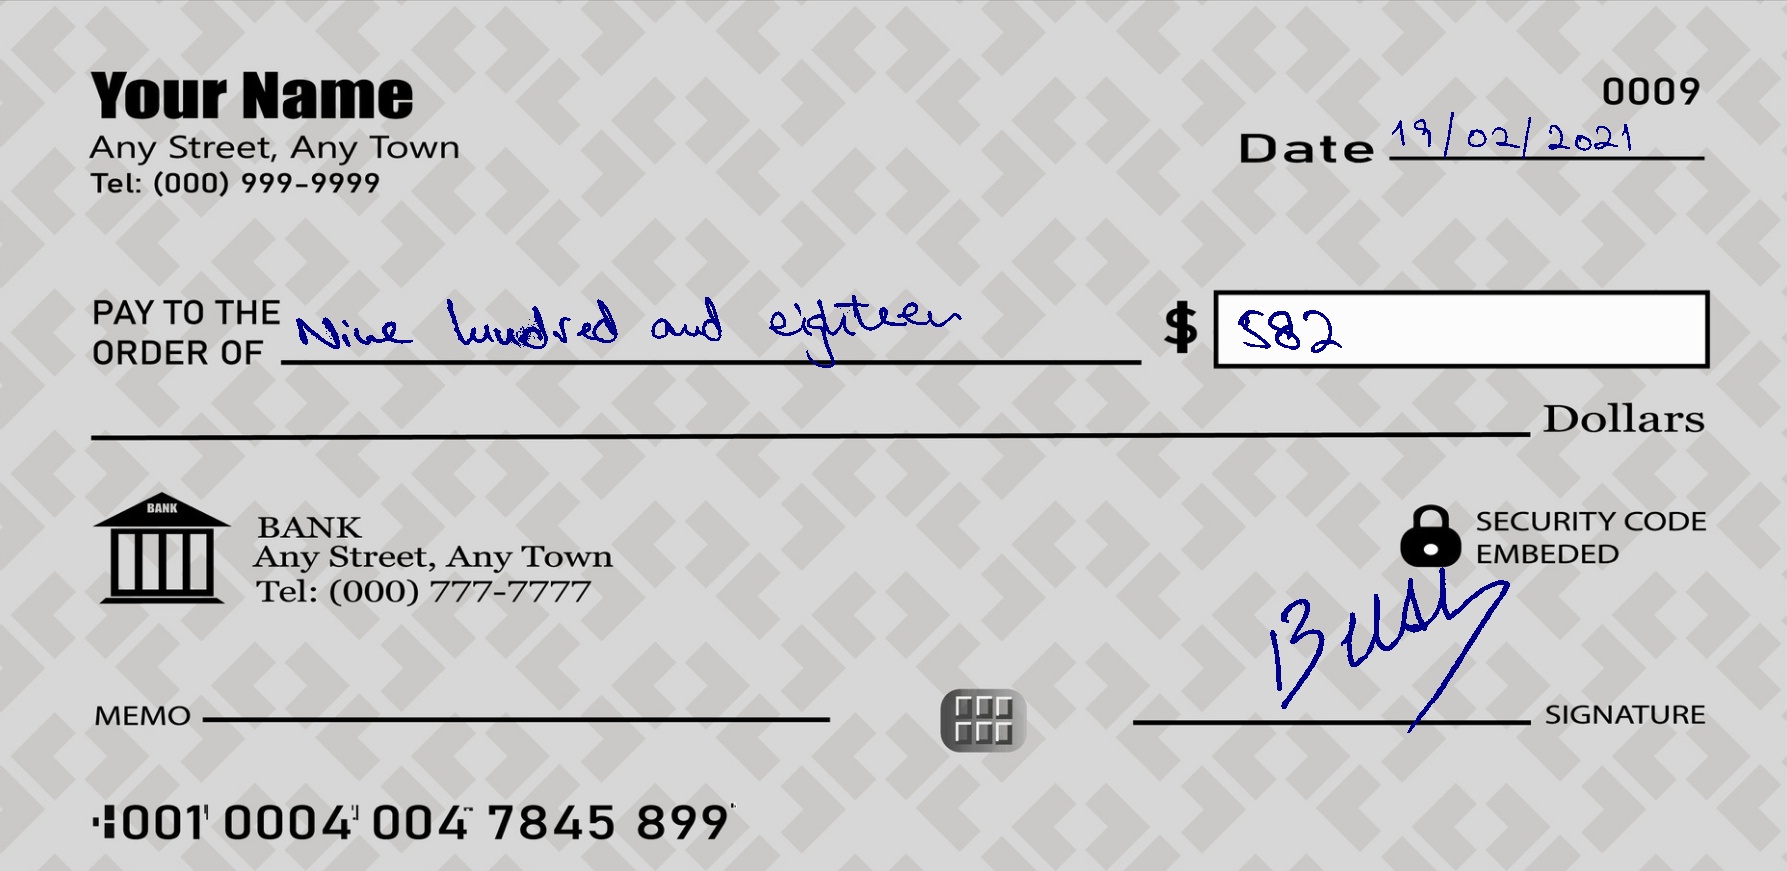 Your Name
0009
Any Street, Any Town
Date 19/02/2021
Tel: (000) 999-9999
PAY TO THE
ORDER OF Nine hundred and eighteen $ 582
Dollars
BANK
BANK
Any Street, Any Town
Tel: (000) 777-7777
SECURITY CODE
EMBEDED
MEMO
Bush
SIGNATURE
001 0004 004 7845 899